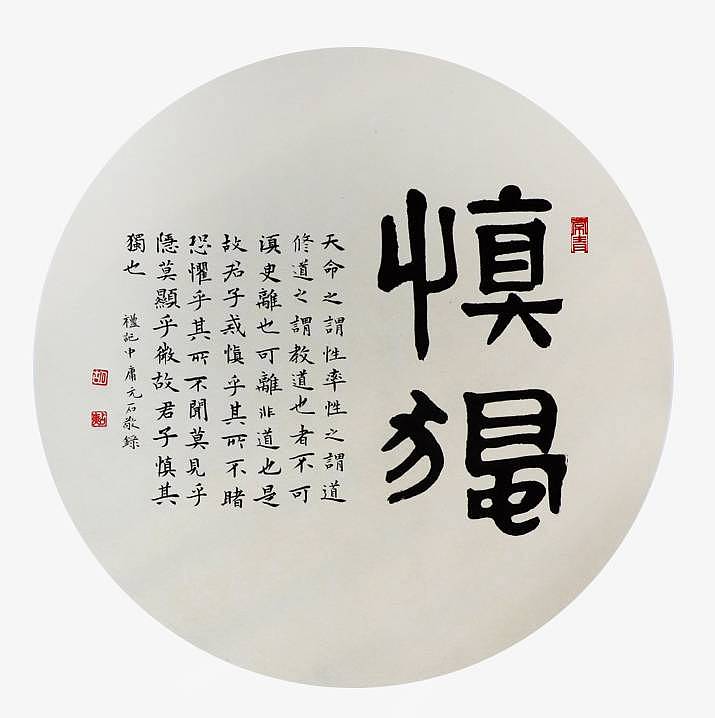 慎獨
天命之謂性率性之謂道
修道之謂教道也者不可
湏臾離也可離非道也是
故君子戒慎乎其所不睹
恐懼乎其所不聞莫見乎
隱莫顯乎微故君子慎其
獨也
禮記中庸元石敬録